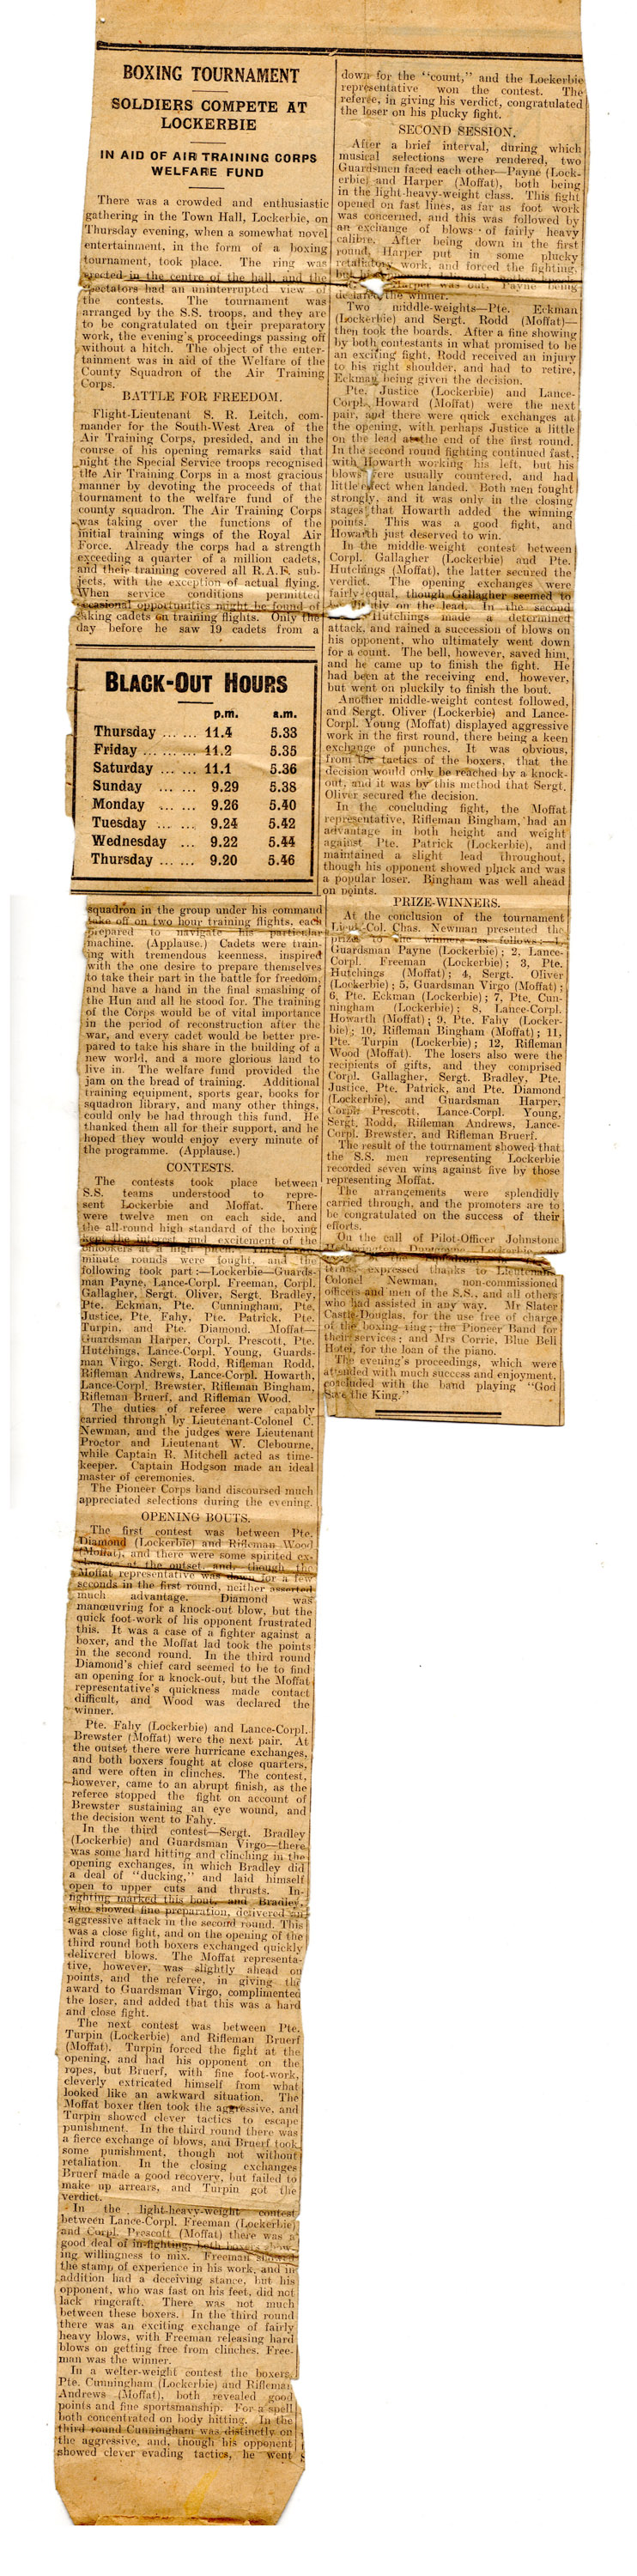 BOXING TOURNAMENT
SOLDIERS COMPETE AT
LOCKERBIE
IN AID OF AIR TRAINING CORPS
WELFARE FUND
There was a crowded and enthusiastic
gathering in the Town Hall, Lockerbie, on
Thursday evening, when a somewhat novel
entertainment, in the form of a boxing
tournament, took place. The ring was
erected in the centre of the hall, and the
spectators had an uninterrupted view of
the contests. The tournament was
arranged by the S.S. troops, and they are
to be congratulated on their preparatory
work, the evening's proceedings passing off
without a hitch. The object of the enter-
tainment was in aid of the Welfare of the
County Squadron of the Air Training
Corps.
BATTLE FOR FREEDOM.
Flight-Lieutenant S. R. Leitch, com-
mander for the South-West Area of the
Air Training Corps, presided, and in the
course of his opening remarks said that
night the Special Service troops recognised
the Air Training Corps in a most gracious
manner by devoting the proceeds of that
tournament to the welfare fund of the
county squadron. The Air Training Corps
was taking over the functions of the
initial training wings of the Royal Air
Force. Already the corps had a strength
exceeding a quarter of a million cadets,
and their training covered all R.A.F. sub-
jects, with the exception of actual flying.
When service conditions permitted
occasional opportunities might be found of
taking cadets on training flights. Only the
day before he saw 19 cadets from a
BLACK-OUT HOURS
p.m. a.m.
Thursday ... ... 11.4 5.33
Friday ... ... ... 11.2 5.35
Saturday ... ... 11.1 5.36
Sunday ... ... 9.29 5.38
Monday ... ... 9.26 5.40
Tuesday ... ... 9.24 5.42
Wednesday ... 9.22 5.44
Thursday ... ... 9.20 5.46
squadron in the group under his command
take off on two hour training flights, each
prepared to navigate his particular
machine. (Applause.) Cadets were train-
ing with tremendous keenness, inspired
with the one desire to prepare themselves
to take their part in the battle for freedom,
and have a hand in the final smashing of
the Hun and all he stood for. The training
of the Corps would be of vital importance
in the period of reconstruction after the
war, and every cadet would be better pre-
pared to take his share in the building of a
new world, and a more glorious land to
live in. The welfare fund provided the
jam on the bread of training. Additional
training equipment, sports gear, books for
squadron library, and many other things,
could only be had through this fund. He
thanked them all for their support, and he
hoped they would enjoy every minute of
the programme. (Applause.)
CONTESTS.
The contests took place between
S.S. teams understood to repre-
sent Lockerbie and Moffat. There
were twelve men on each side, and
the all-round high standard of the boxing
kept the interest and excitement of the
onlookers at a high pitch.
minute rounds were fought, and the
following took part:—Lockerbie—Guards-
man Payne, Lance-Corpl. Freeman, Corpl.
Gallagher, Sergt. Oliver, Sergt. Bradley,
Pte. Eckman, Pte. Cunningham, Pte.
Justice, Pte. Fahy, Pte. Patrick, Pte.
Turpin, and Pte. Diamond. Moffat—
Guardsman Harper, Corpl. Prescott, Pte.
Hutchings, Lance-Corpl. Young, Guards-
man Virgo, Sergt. Rodd, Rifleman Rodd,
Rifleman Andrews, Lance-Corpl. Howarth,
Lance-Corpl. Brewster, Rifleman Bingham,
Rifleman Bruerf, and Rifleman Wood.
The duties of referee were capably
carried through by Lieutenant-Colonel C.
Newman, and the judges were Lieutenant
Proctor and Lieutenant W. Clebourne,
while Captain R. Mitchell acted as time-
keeper. Captain Hodgson made an ideal
master of ceremonies.
The Pioneer Corps band discoursed much
appreciated selections during the evening.
OPENING BOUTS.
The first contest was between Pte.
Diamond (Lockerbie) and Rifleman Wood
(Moffat), and there were some spirited ex-
changes at the outset, and, though the
Moffat representative was down for a few
seconds in the first round, neither asserted
much advantage. Diamond was
manœuvring for a knock-out blow, but the
quick foot-work of his opponent frustrated
this. It was a case of a fighter against a
boxer, and the Moffat lad took the points
in the second round. In the third round
Diamond's chief card seemed to be to find
an opening for a knock-out, but the Moffat
representative's quickness made contact
difficult, and Wood was declared the
winner.
Pte. Fahy (Lockerbie) and Lance-Corpl.
Brewster (Moffat) were the next pair. At
the outset there were hurricane exchanges,
and both boxers fought at close quarters,
and were often in clinches. The contest,
however, came to an abrupt finish, as the
referee stopped the fight on account of
Brewster sustaining an eye wound, and
the decision went to Fahy.
In the third contest—Sergt. Bradley
(Lockerbie) and Guardsman Virgo—there
was some hard hitting and clinching in the
opening exchanges, in which Bradley did
a deal of "ducking," and laid himself
open to upper cuts and thrusts. In-
fighting marked this bout, and Bradley,
who showed fine preparation, delivered an
aggressive attack in the second round. This
was a close fight, and on the opening of the
third round both boxers exchanged quickly
delivered blows. The Moffat representa-
tive, however, was slightly ahead on
points, and the referee, in giving the
award to Guardsman Virgo, complimented
the loser, and added that this was a hard
and close fight.
The next contest was between Pte.
Turpin (Lockerbie) and Rifleman Bruerf
(Moffat). Turpin forced the fight at the
opening, and had his opponent on the
ropes, but Bruerf, with fine foot-work,
cleverly extricated himself from what
looked like an awkward situation. The
Moffat boxer then took the aggressive, and
Turpin showed clever tactics to escape
punishment. In the third round there was
a fierce exchange of blows, and Bruerf took
some punishment, though not without
retaliation. In the closing exchanges
Bruerf made a good recovery, but failed to
make up arrears, and Turpin got the
verdict.
In the light-heavy-weight contest
between Lance-Corpl. Freeman (Lockerbie)
and Corpl. Prescott (Moffat) there was a
good deal of in-fighting, both boxers show-
ing willingness to mix. Freeman showed
the stamp of experience in his work, and in
addition had a deceiving stance, but his
opponent, who was fast on his feet, did not
lack ringcraft. There was not much
between these boxers. In the third round
there was an exciting exchange of fairly
heavy blows, with Freeman releasing hard
blows on getting free from clinches. Free-
man was the winner.
In a welter-weight contest the boxers,
Pte. Cunningham (Lockerbie) and Rifleman
Andrews (Moffat), both revealed good
points and fine sportsmanship. For a spell
both concentrated on body hitting. In the
third round Cunningham was distinctly on
the aggressive, and, though his opponent
showed clever evading tactics, he went
down for the "count," and the Lockerbie
representative won the contest. The
referee, in giving his verdict, congratulated
the loser on his plucky fight.
SECOND SESSION.
After a brief interval, during which
musical selections were rendered, two
Guardsmen faced each other—Payne (Lock-
erbie) and Harper (Moffat), both being
in the light-heavy-weight class. This fight
opened on fast lines, as far as foot work
was concerned, and this was followed by
an exchange of blows of fairly heavy
calibre. After being down in the first
round, Harper put in some plucky
retaliatory work, and forced the fighting,
but
Harper was out, Payne being
declared the winner.
Two middle-weights—Pte. Eckman
(Lockerbie) and Sergt. Rodd (Moffat)—
then took the boards. After a fine showing
by both contestants in what promised to be
an exciting fight, Rodd received an injury
to his right shoulder, and had to retire,
Eckman being given the decision.
Pte. Justice (Lockerbie) and Lance-
Corpl. Howard (Moffat) were the next
pair, and there were quick exchanges at
the opening, with perhaps Justice a little
on the lead at the end of the first round.
In the second round fighting continued fast,
with Howarth working his left, but his
blows were usually countered, and had
little effect when landed. Both men fought
strongly, and it was only in the closing
stages that Howarth added the winning
points. This was a good fight, and
Howarth just deserved to win.
In the middle-weight contest between
Corpl. Gallagher (Lockerbie) and Pte.
Hutchings (Moffat), the latter secured the
verdict. The opening exchanges were
fairly equal, though Gallagher seemed to
on the lead. In the second
Hutchings made a determined
attack, and rained a succession of blows on
his opponent, who ultimately went down
for a count. The bell, however, saved him,
and he came up to finish the fight. He
had been at the receiving end, however,
but went on pluckily to finish the bout.
Another middle-weight contest followed,
and Sergt. Oliver (Lockerbie) and Lance-
Corpl. Young (Moffat) displayed aggressive
work in the first round, there being a keen
exchange of punches. It was obvious,
from the tactics of the boxers, that the
decision would only be reached by a knock-
out, and it was by this method that Sergt.
Oliver secured the decision.
In the concluding fight, the Moffat
representative, Rifleman Bingham, had an
advantage in both height and weight
against Pte. Patrick (Lockerbie), and
maintained a slight lead throughout,
though his opponent showed pluck and was
a popular loser. Bingham was well ahead
on points.
PRIZE-WINNERS.
At the conclusion of the tournament
Lieut.-Col. Chas. Newman presented the
prizes to the winners as follows:—1,
Guardsman Payne (Lockerbie); 2, Lance-
Corpl. Freeman (Lockerbie); 3, Pte.
Hutchings (Moffat); 4, Sergt. Oliver
(Lockerbie); 5, Guardsman Virgo (Moffat);
6, Pte. Eckman (Lockerbie); 7, Pte. Cun-
ningham (Lockerbie); 8, Lance-Corpl.
Howarth (Moffat); 9, Pte. Fahy (Locker-
bie); 10, Rifleman Bingham (Moffat); 11,
Pte. Turpin (Lockerbie); 12, Rifleman
Wood (Moffat). The losers also were the
recipients of gifts, and they comprised
Corpl. Gallagher, Sergt. Bradley, Pte.
Justice, Pte. Patrick, and Pte. Diamond
(Lockerbie), and Guardsman Harper,
Corpl. Prescott, Lance-Corpl. Young,
Sergt. Rodd, Rifleman Andrews, Lance-
Corpl. Brewster, and Rifleman Bruerf.
The result of the tournament showed that
the S.S. men representing Lockerbie
recorded seven wins against five by those
representing Moffat.
The arrangements were splendidly
carried through, and the promoters are to
be congratulated on the success of their
efforts.
On the call of Pilot-Officer Johnstone
Lockerbie
expressed thanks to Lieutenant-
Colonel Newman, non-commissioned
officers and men of the S.S., and all others
who had assisted in any way. Mr Slater
Castle-Douglas, for the use free of charge
of the boxing-ring; the Pioneer Band for
their services; and Mrs Corrie, Blue Bell
Hotel, for the loan of the piano.
The evening's proceedings, which were
attended with much success and enjoyment,
concluded with the band playing "God
Save the King."